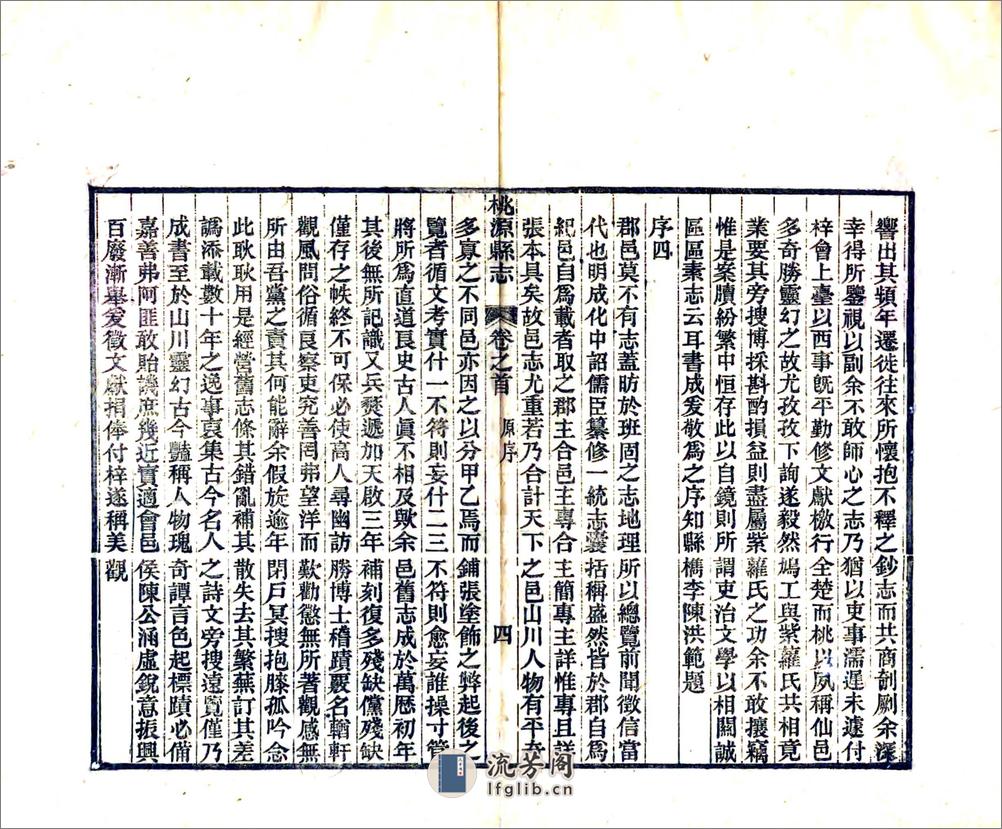 響出其頻年遷徙往來所懷抱不釋之鈔志而共商剞劂余深
幸得所鑒視以副余不敢師心之志乃猶以吏事濡遲未遽付
梓會上臺以西事旣平勤修文獻檄行全楚而桃以夙稱仙邑
多奇勝靈幻之故尤孜孜下詢遂毅然鳩工與紫蘿氏共相竟
業要其旁搜博採斟酌損益則盡屬紫蘿氏之功余不敢攘竊
惟是案牘紛繁中恒存此以自鏡則所謂吏治文學以相關誠
區區素志云耳書成爰敬爲之序知縣檇李陳洪範題
序四
郡邑莫不有志蓋昉於班固之志地理所以總覽前聞徵信當
代也明成化中詔儒臣纂修一統志囊括稱盛然皆於郡自爲
紀邑自爲載者取之郡主合邑主專合主簡專主詳惟專且詳
張本具矣故邑志尤重若乃合計天下之邑山川人物有平奇
桃源縣志 卷之首 原序 四
多寡之不同邑亦因之以分甲乙焉而鋪張塗飾之弊起後之
覽者循文考實什一不符則妄什二三不符則愈妄誰操寸管
將所爲直道良史古人眞不相及歟余邑舊志成於萬曆初年
其後無所記識又兵燹遞加天啟三年補刻復多殘缺儻殘缺
僅存之帙終不可保必使高人尋幽訪勝博士稽蹟覈名輶軒
觀風問俗循良察吏究善罔弗望洋而歎勸懲無所著觀感無
所由吾黨之責其何能辭余假旋逾年閉戸冥搜抱膝孤吟念
此耿耿用是經營舊志條其錯亂補其散失去其繁蕪訂其差
譌添載數十年之逸事裒集古今名人之詩文旁搜遠覽僅乃
成書至於山川靈幻古今豔稱人物瑰奇譚言色起標蹟必備
嘉善弗阿匪敢貽譏庶幾近實適會邑侯陳公涵虛銳意振興
百廢漸舉爰徵文獻捐俸付梓遂稱美觀
流芳阁
lfglib.cn